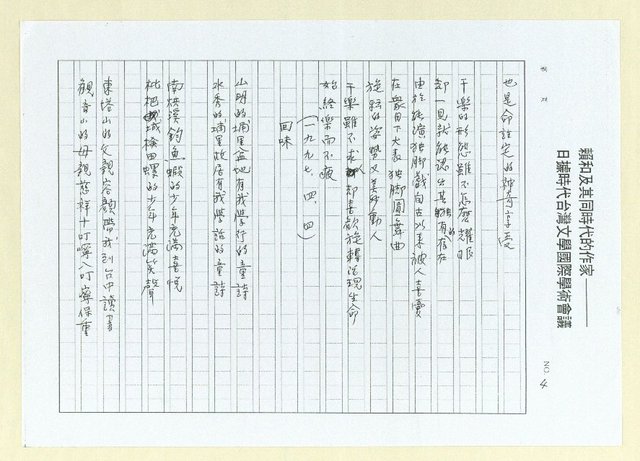 賴和及其同時代的作家——
日據時代台灣文學國際學術會議
NO 4
也是命註定的神奇享受
干樂的形態雖不怎麼耀眼
卻一見就能認出其獨有的存在
由於扮演独脚戲自古以來被人喜愛
在眾目下大表独脚圓舞曲
旋轉的姿勢又美妙動人
干樂雖不求 卻喜歡旋轉活現生命
始終樂而不疲
（一九九七、四、四）
回味
山明的埔里盆地有我學行的童詩
水秀的埔里故居有我學話的童詩
南烘溪釣魚蝦的少年充滿喜悅
枇杷城撿田螺的少年充滿笑聲
東塔山的父親容顏帶我到台中讀書
觀音山的母親慈祥十叮嚀八叮嚀保重